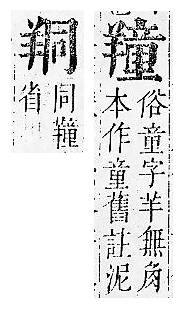 俗童字羊無角
本作童舊註泥
同
省